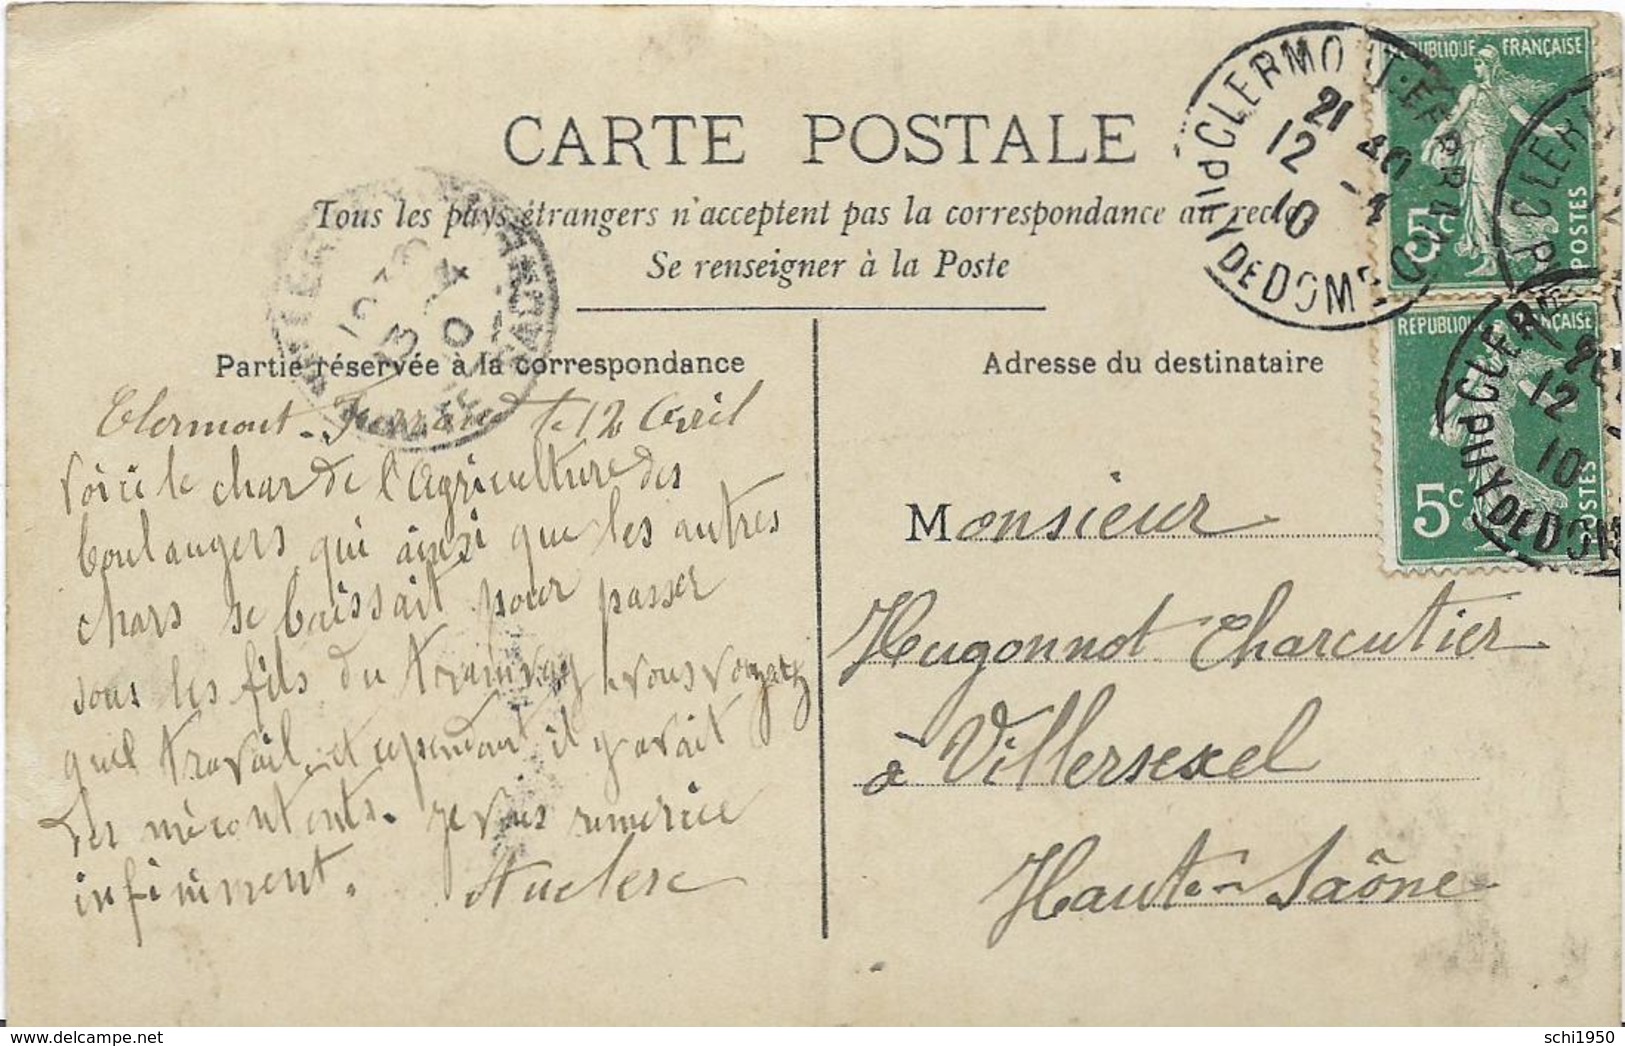 CARTE POSTALE
Tous les pays étrangers n'acceptent pas la correspondance au recto.
Se renseigner à la Poste
Partie réservée à la correspondance
Clermont-Ferrand le 12 Avril
Voici le char de l'Agriculture des
boulangers qui ainsi que les autres
chars se baissait pour passer
sous les fils du tramway, vous voyez
quel travail, et cependant il y avait
des mécontents. Je vous remercie
infiniment. Auclerc
Adresse du destinataire
Monsieur
Hugonnot Charcutier
à Villersexel
Haute-Saône
REPUBLIQUE FRANÇAISE
5c
POSTES
REPUBLIQUE FRANÇAISE
5c
POSTES
CLERMONT-FERRAND
21 40
12 - 4
10
PUY DE DOME
CLER
CLER
12
10
PUY DE DOM
13
10
delcampe.net
schi1950